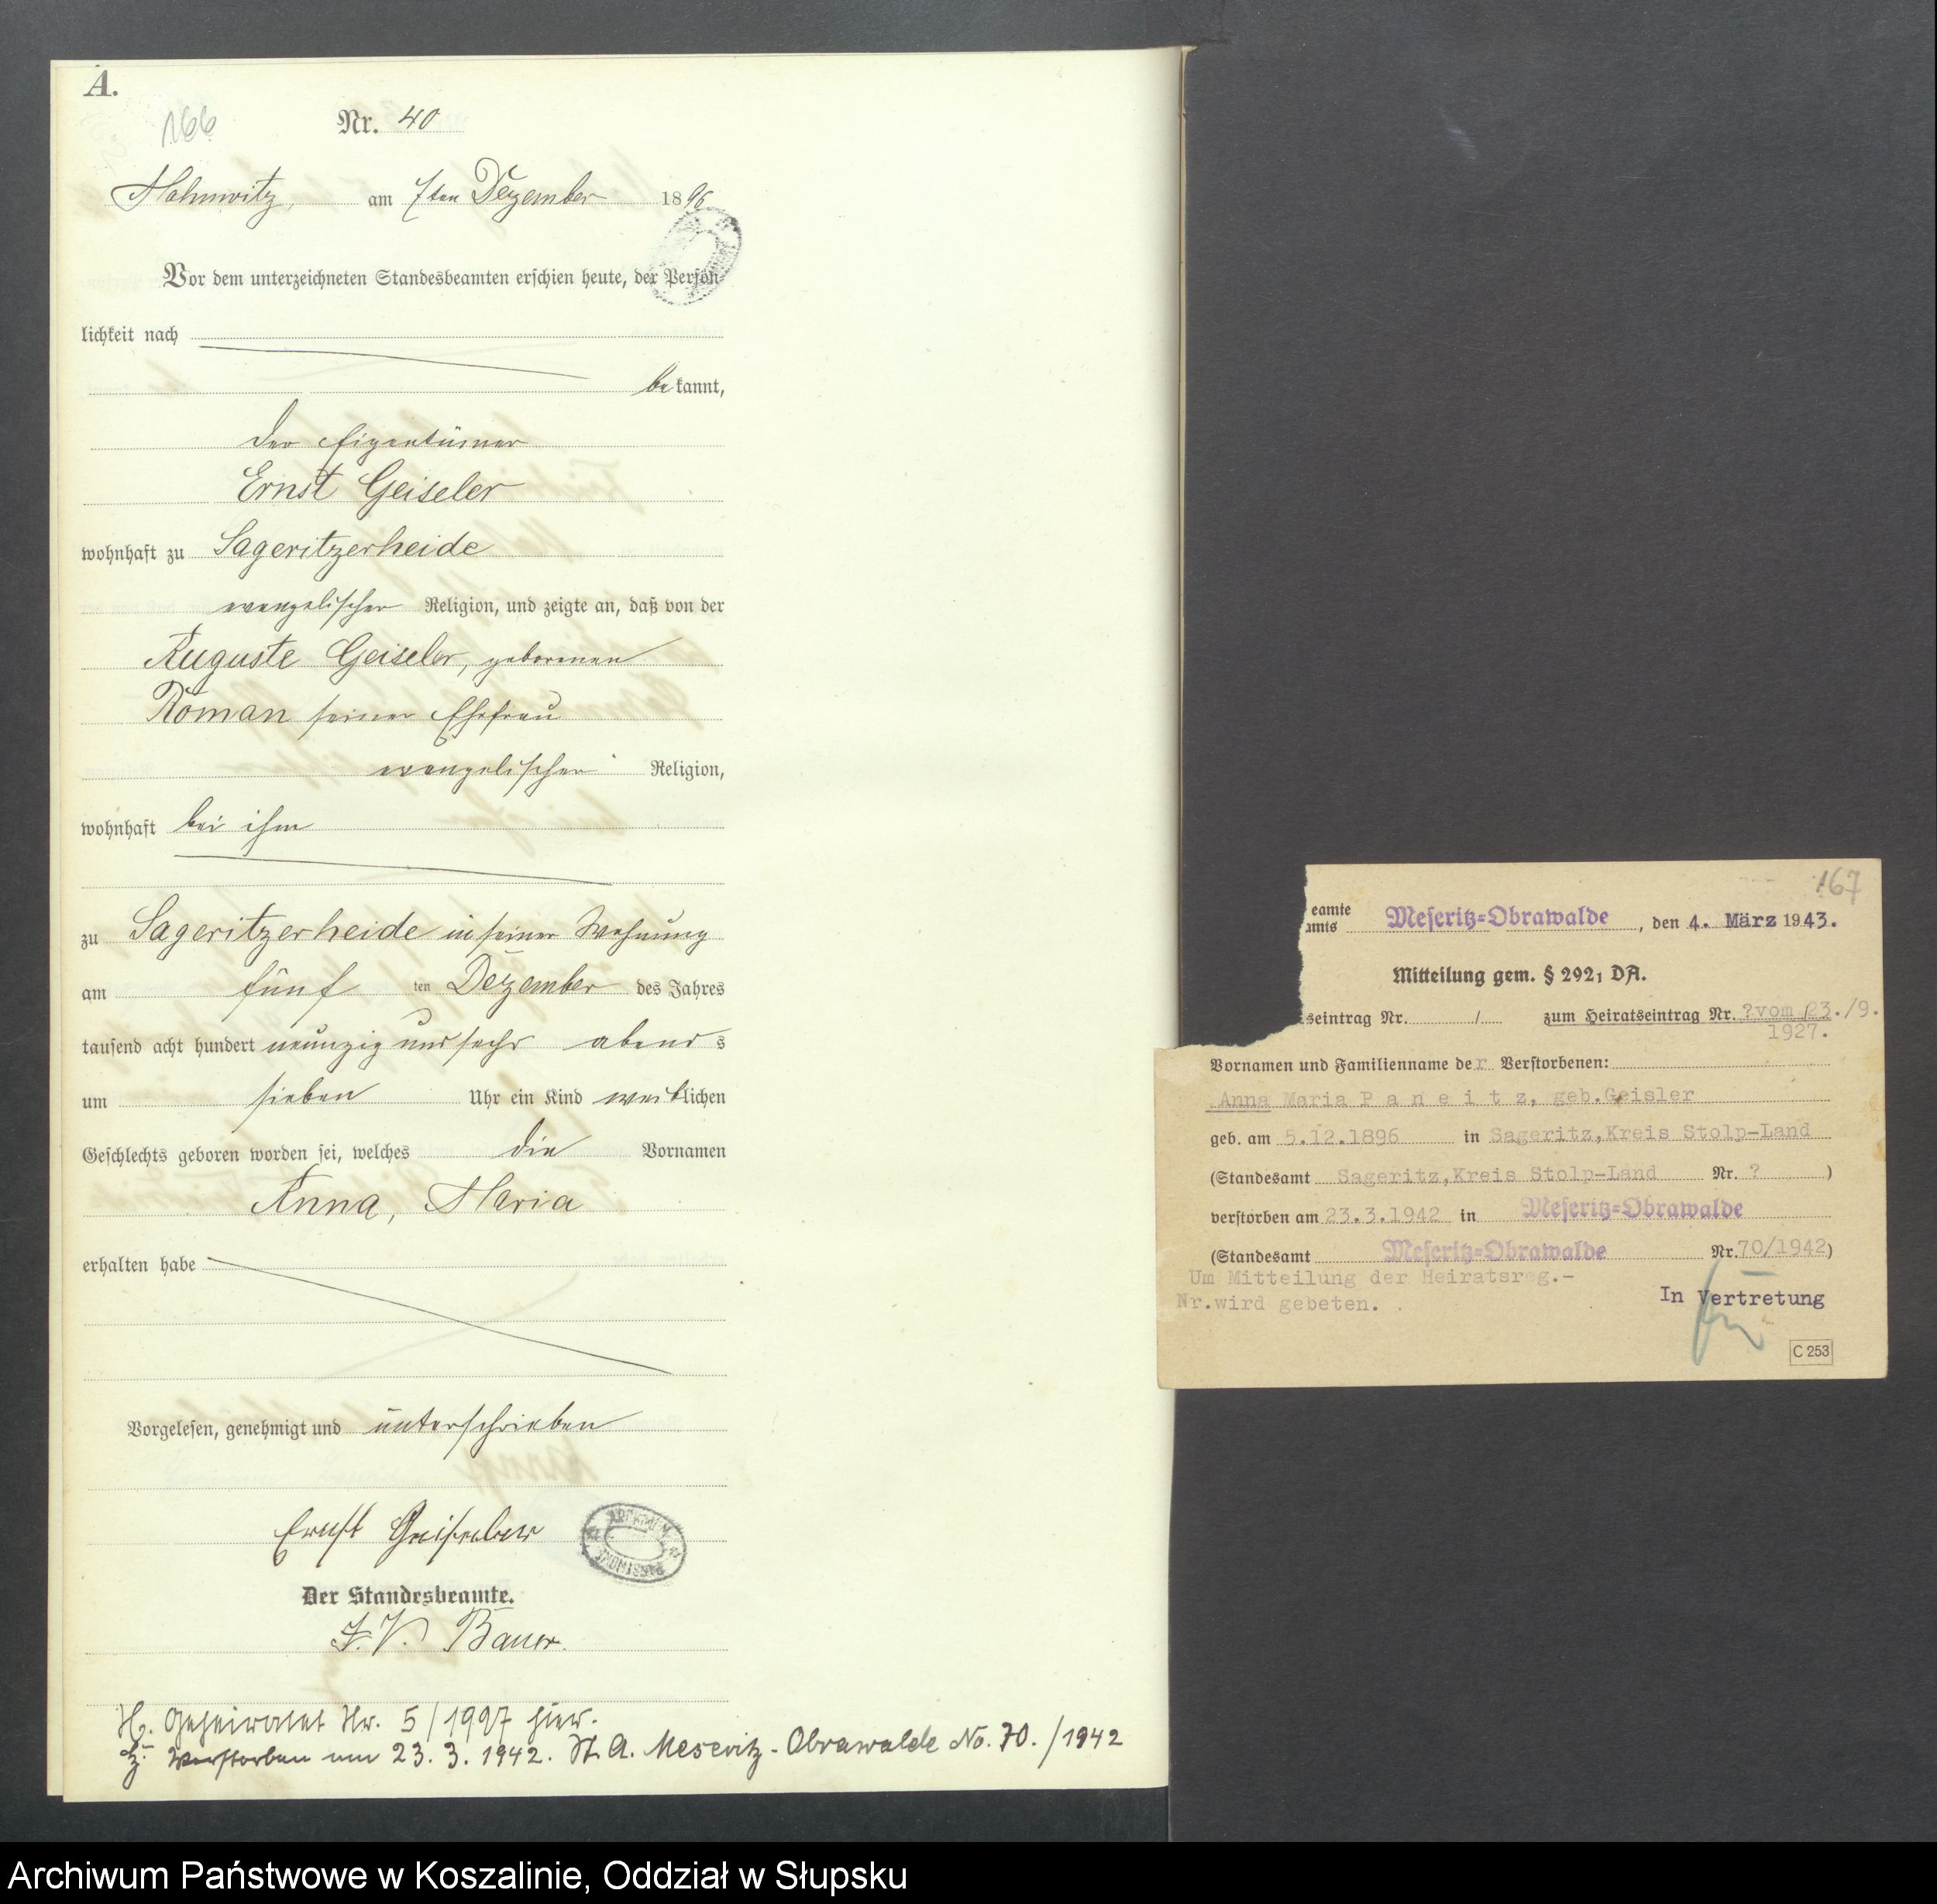 A.
166
Nr. 40
Mahnwitz, am 7ten Dezember 1896
Vor dem unterzeichneten Standesbeamten erschien heute, der Persön-
lichkeit nach
bekannt,
der Eigentümer
Ernst Geiseler
wohnhaft zu Sageritzerheide
evangelischer Religion, und zeigte an, daß von der
Auguste Geiseler, geborenen
Roman seiner Ehefrau
evangelischer Religion,
wohnhaft bei ihm
zu Sageritzerheide in seiner Wohnung
am fünf ten Dezember des Jahres
tausend acht hundert neunzig und sechs abends
um sieben Uhr ein Kind weiblichen
Geschlechts geboren worden sei, welches die Vornamen
Anna, Maria
erhalten habe
Vorgelesen, genehmigt und unterschrieben
Ernst Geiseler
ARCHIWUM
Der Standesbeamte.
J. V. Bauer.
Geheiratet Nr. 5/1927 hier.
Verstorben am 23. 3. 1942. St. A. Meseritz-Obrawalde No. 70./1942
167
eamte
amts Meseritz-Obrawalde, den 4. März 1943.
Mitteilung gem. § 292, DA.
seintrag Nr. / zum Heiratseintrag Nr. ?vom 23./9.
1927.
Vornamen und Familienname der Verstorbenen:
Anna Maria P a n e i t z, geb.Geisler
geb. am 5.12.1896 in Sageritz,Kreis Stolp-Land
(Standesamt Sageritz,Kreis Stolp-Land Nr. ? )
verstorben am 23.3.1942 in Meseritz-Obrawalde
(Standesamt Meseritz-Obrawalde Nr. 70/1942)
Um Mitteilung der Heiratsreg.-
Nr.wird gebeten.
In Vertretung
C 253
Archiwum Państwowe w Koszalinie, Oddział w Słupsku